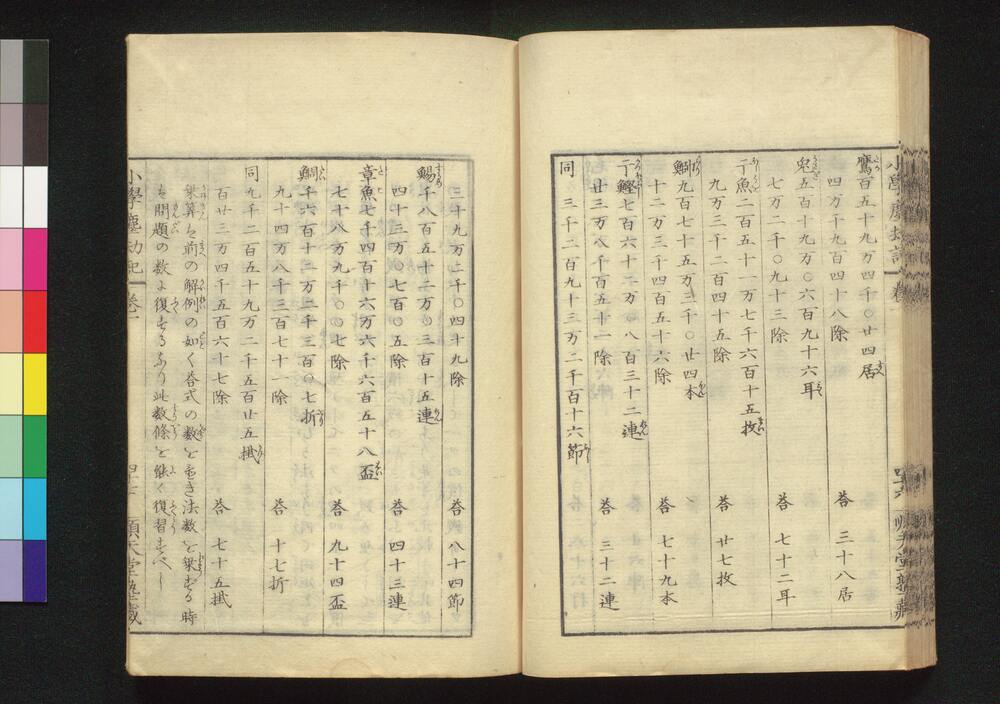 小學塵劫記 卷一
鷹百五十九万四千〇廿四居
四万千九百四十八除 荅 三十八居
兎五百十九万〇六百九十六耳
七万二千〇九十三除 荅 七十二耳
丁魚二百五十一万七千六百十五枚
九万三千二百四十五除 荅 廿七枚
鰤九百七十五万三千〇廿四本
十二万三千四百五十六除 荅 七十九本
丁鰹七百六十二万〇八百三十二連
廿三万八千百五十一除 荅 三十二連
同 三千二百九十三万二千百十六節
三十九万二千〇四十九除 荅 八十四節
鯣千八百五十二万〇三百十五連
四十三万〇七百〇五除 荅 四十三連
章魚七千四百十六万六千六百五十八盃
七十八万九千〇〇七除 荅 九十四盃
鯛千六百十二万二千三百〇七折
九十四万八千三百七十一除 荅 十七折
同 九千二百五十九万二千五百廿五掛
百廿三万四千五百六十七除 荅 七十五掛
乗算ハ前の解例の如く荅式の数を置き法数を乗ずる時
ハ問題の数に復するなり此数條を能く復習すべし
小學塵劫記 卷一 四十七 順天堂塾藏